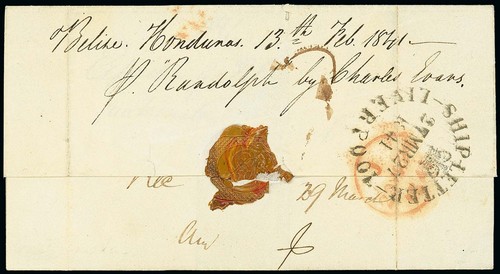 Belize. Honduras. 13.th Feb. 1841
P. Randolph by Charles Evans.
SHIP-LETTER-LIVERPOOL
27 MR 27
41
Rec
29 March